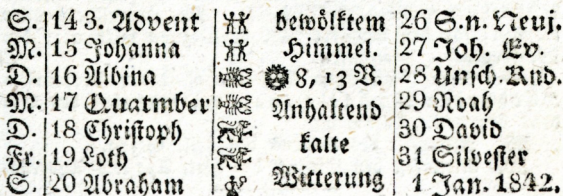 S. 14 3. Advent bewölktem 26 S.n. Neuj.
M. 15 Johanna Himmel. 27 Joh. Ev.
D. 16 Albina 8, 13 V. 28 Unsch. Knd.
M. 17 Quatmber Anhaltend 29 Noah
D. 18 Christoph kalte 30 David
Fr. 19 Loth 31 Silvester
S. 20 Abraham Witterung 1 Jan. 1842.